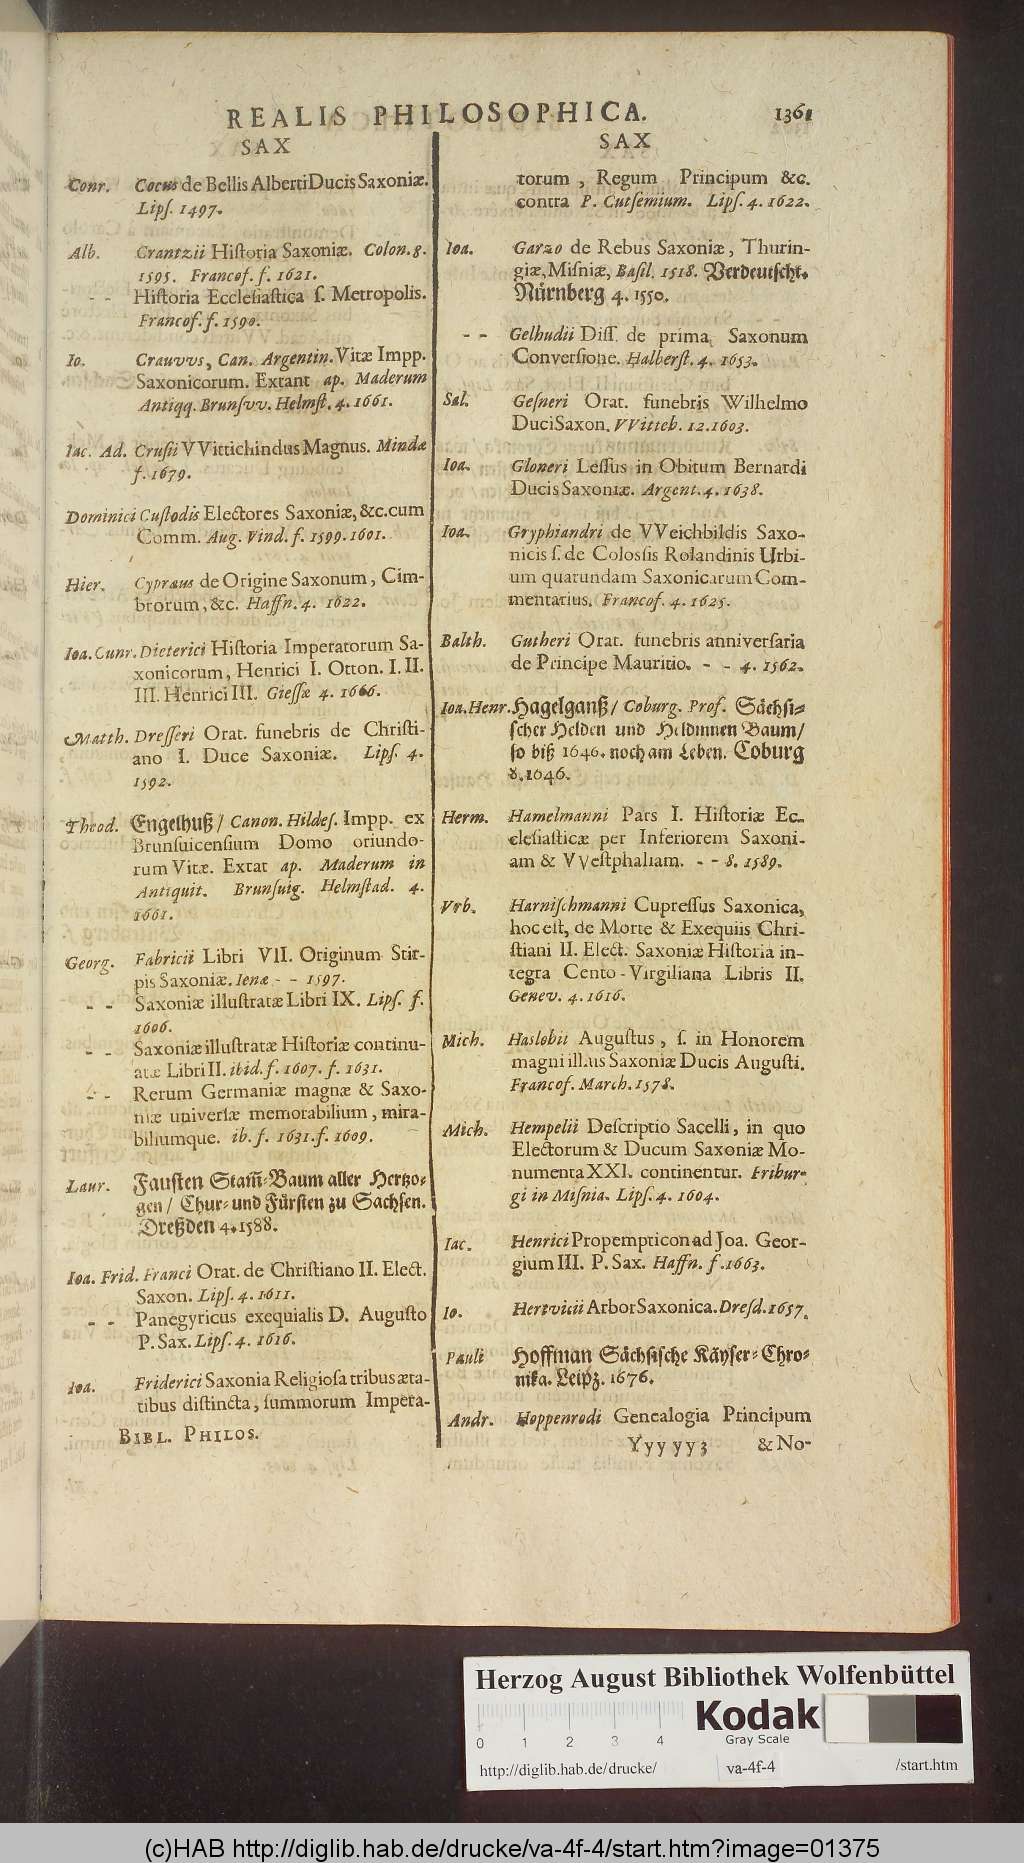 REALIS PHILOSOPHICA. 1361
SAX
Conr. Cocus de Bellis Alberti Ducis Saxoniæ.
Lipſ. 1497.
Alb. Crantzii Hiſtoria Saxoniæ. Colon. 8.
1595. Francof. f. 1621.
- - Hiſtoria Eccleſiaſtica ſ. Metropolis.
Francof. f. 1590.
Io. Crauvvs, Can. Argentin. Vitæ Impp.
Saxonicorum. Extant ap. Maderum
Antiqq. Brunſvv. Helmſt. 4. 1661.
Iac. Ad. Cruſii VVittichindus Magnus. Mindæ
f. 1679.
Dominici Cuſtodis Electores Saxoniæ, &c. cum
Comm. Aug. Vind. f. 1599. 1601.
Hier. Cypræus de Origine Saxonum, Cim-
brorum, &c. Haffn. 4. 1622.
Ioa. Cunr. Dieterici Hiſtoria Imperatorum Sa-
xonicorum, Henrici I. Otton. I. II.
III. Henrici III. Gieſſæ 4. 1666.
Matth. Dreſſeri Orat. funebris de Chriſti-
ano I. Duce Saxoniæ. Lipſ. 4.
1592.
Theod. Engelhuß / Canon. Hildeſ. Impp. ex
Brunſuicenſium Domo oriundo-
rum Vitæ. Extat ap. Maderum in
Antiquit. Brunſuig. Helmſtad. 4.
1661.
Georg. Fabricii Libri VII. Originum Stir-
pis Saxoniæ. Ienæ - - 1597.
- - Saxoniæ illuſtratæ Libri IX. Lipſ. f.
1606.
- - Saxoniæ illuſtratæ Hiſtoriæ continu-
atæ Libri II. ibid. f. 1607. f. 1631.
- - Rerum Germaniæ magnæ & Saxo-
niæ univerſæ memorabilium, mira-
biliumque. ib. f. 1631. f. 1609.
Laur. Fauſten Stam̃-Baum aller Hertzo-
gen / Chur- und Fürſten zu Sachſen.
Dreßden 4. 1588.
Ioa. Frid. Franci Orat. de Chriſtiano II. Elect.
Saxon. Lipſ. 4. 1611.
- - Panegyricus exequialis D. Auguſto
P. Sax. Lipſ. 4. 1616.
Ioa. Friderici Saxonia Religioſa tribus æta-
tibus diſtincta, ſummorum Impera-
BIBL. PHILOS.
SAX
torum, Regum Principum &c.
contra P. Cutſemium. Lipſ. 4. 1622.
Ioa. Garzo de Rebus Saxoniæ, Thurin-
giæ, Miſniæ, Baſil. 1518. Verdeutſcht.
Nürnberg 4. 1550.
- - Gelhudii Diſſ. de prima Saxonum
Converſione. Halberſt. 4. 1653.
Sal. Geſneri Orat. funebris Wilhelmo
Duci Saxon. VVitteb. 12. 1603.
Ioa. Gloneri Leſſus in Obitum Bernardi
Ducis Saxoniæ. Argent. 4. 1638.
Ioa. Gryphiandri de VVeichbildis Saxo-
nicis ſ. de Coloſſis Rolandinis Urbi-
um quarundam Saxonicarum Com-
mentarius. Francof. 4. 1625.
Balth. Gutheri Orat. funebris anniverſaria
de Principe Mauritio. - - 4. 1562.
Ioa. Henr. Hagelganß / Coburg. Prof. Sächſi-
ſcher Helden und Heldinnen Baum /
ſo biß 1646. noch am Leben. Coburg
8. 1646.
Herm. Hamelmanni Pars I. Hiſtoriæ Ec-
cleſiaſticæ per Inferiorem Saxoni-
am & VVeſtphaliam. - - 8. 1589.
Vrb. Harniſchmanni Cupreſſus Saxonica,
hoc eſt, de Morte & Exequiis Chri-
ſtiani II. Elect. Saxoniæ Hiſtoria in-
tegra Cento-Virgiliana Libris II.
Genev. 4. 1616.
Mich. Haslobii Auguſtus, ſ. in Honorem
magni illius Saxoniæ Ducis Auguſti.
Francof. March. 1578.
Mich. Hempelii Deſcriptio Sacelli, in quo
Electorum & Ducum Saxoniæ Mo-
numenta XXI. continentur. Fribur-
gi in Miſnia. Lipſ. 4. 1604.
Iac. Henrici Propempticon ad Joa. Geor-
gium III. P. Sax. Haffn. f. 1663.
Io. Hertvicii Arbor Saxonica. Dreſd. 1657.
Pauli Hoffman Sächſiſche Käyſer-Chro-
nika. Leipz. 1676.
Andr. Hoppenrodi Genealogia Principum
Yyy yy 3 & No-
Herzog August Bibliothek Wolfenbüttel
0 1 2 3 4
Kodak
Gray Scale
http://diglib.hab.de/drucke/ va-4f-4 /start.htm
(c)HAB http://diglib.hab.de/drucke/va-4f-4/start.htm?image=01375